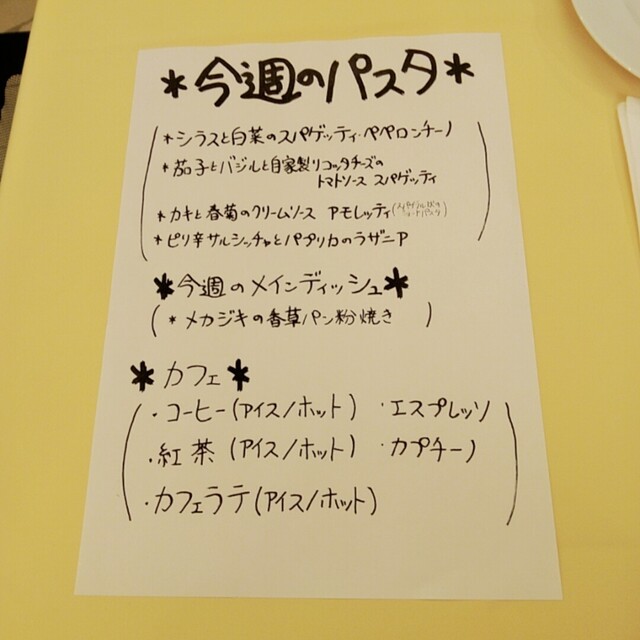 *今週のパスタ*
*シラスと白菜のスパゲッティ・ペペロンチーノ
*茄子とバジルと自家製リコッタチーズの
トマトソース スパゲッティ
*カキと春菊のクリームソース アモレッティ(スパイラル状の
ショートパスタ)
*ピリ辛サルシッチャとパプリカのラザニア
*今週のメインディッシュ*
(*メカジキの香草パン粉焼き)
*カフェ*
・コーヒー(アイス/ホット) ・エスプレッソ
・紅茶(アイス/ホット) ・カプチーノ
・カフェラテ(アイス/ホット)